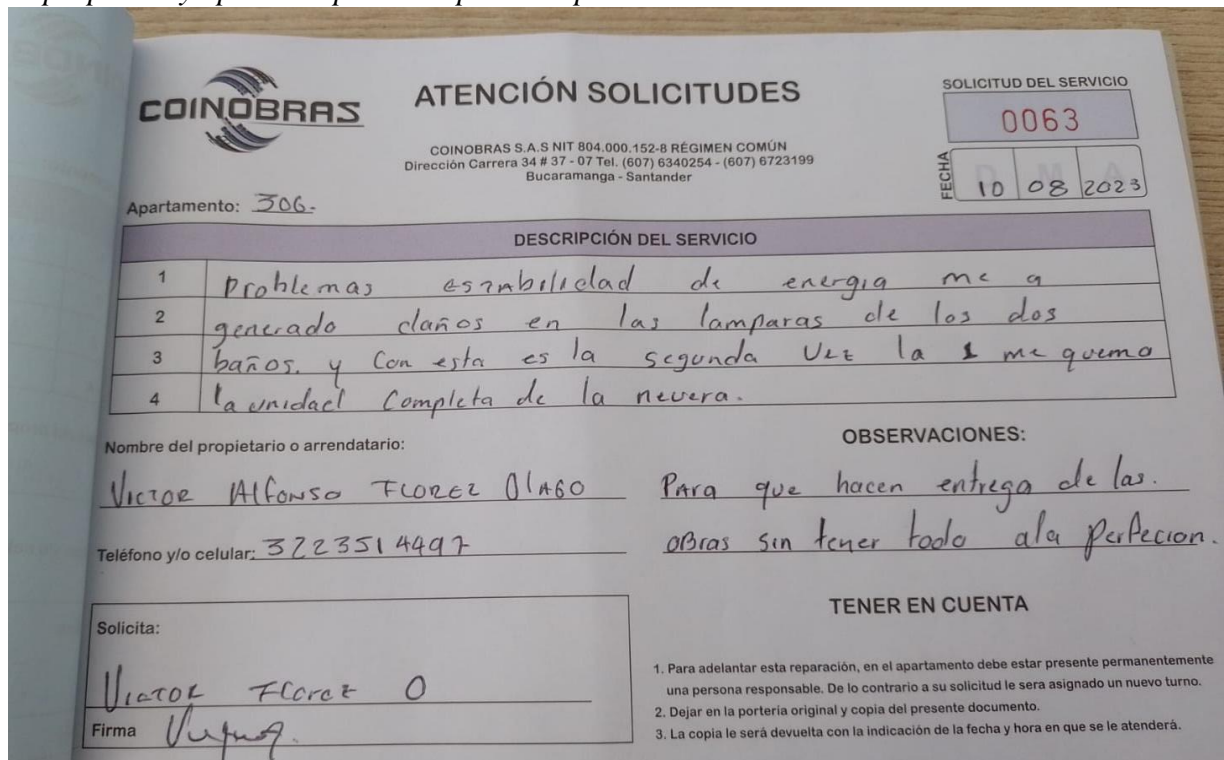 COINOBRAS
ATENCIÓN SOLICITUDES
COINOBRAS S.A.S NIT 804.000.152-8 RÉGIMEN COMÚN
Dirección Carrera 34 # 37 - 07 Tel. (607) 6340254 - (607) 6723199
Bucaramanga - Santander
SOLICITUD DEL SERVICIO
0063
FECHA
D M A
10 08 2023
Apartamento: 306.
DESCRIPCIÓN DEL SERVICIO
1 Problemas estabilidad de energia me a
2 generado daños en las lamparas de los dos
3 baños. y Con esta es la segunda Vez la 1 me quemo
4 la unidad Completa de la nevera.
Nombre del propietario o arrendatario:
VICTOR Alfonso FLOREZ
Teléfono y/o celular: 3223514497
OBSERVACIONES:
Para que hacen entrega de las.
OBras sin tener todo ala Perfecion.
Solicita:
VICTOR FLOREZ O
Firma
TENER EN CUENTA
1. Para adelantar esta reparación, en el apartamento debe estar presente permanentemente
una persona responsable. De lo contrario a su solicitud le sera asignado un nuevo turno.
2. Dejar en la portería original y copia del presente documento.
3. La copia le será devuelta con la indicación de la fecha y hora en que se le atenderá.